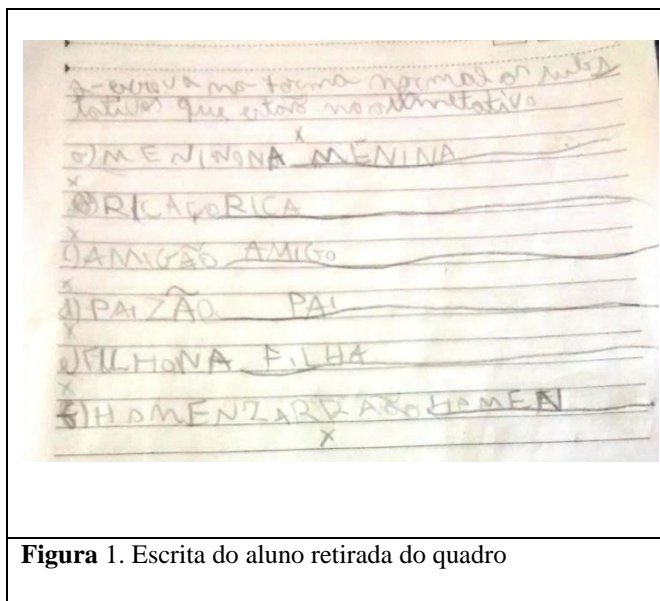 2-escreva na forma normal os subs
tativos que estão no aumetativo
x
a) MENINONA MENINA
x
b) RICAÇO RICA
x
c) AMIGÃO AMIGO
x
d) PAIZÃO PAI
x
e) FILHONA FILHA
x
f) HOMENZARRÃO HOMEN
x
Figura 1. Escrita do aluno retirada do quadro